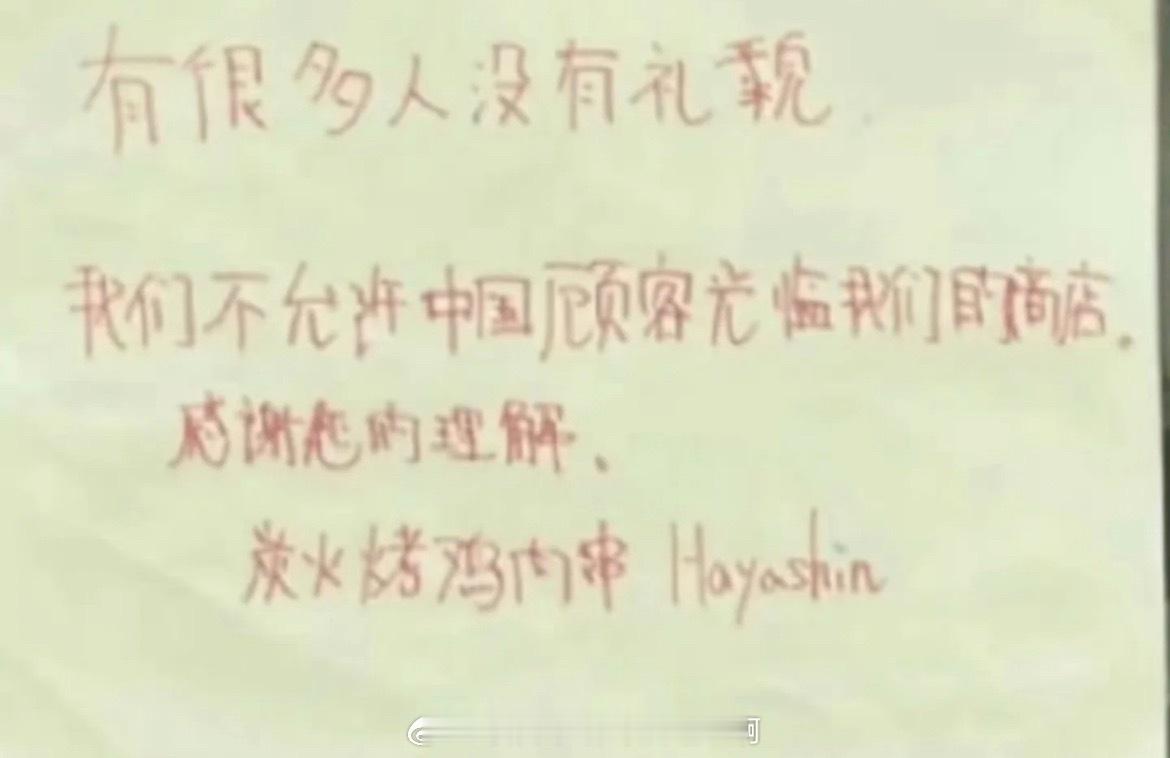 有很多人没有礼貌
我们不允许中国顾客光临我们的商店.
感谢您的理解、
炭火烤鸡肉串 Hayashin